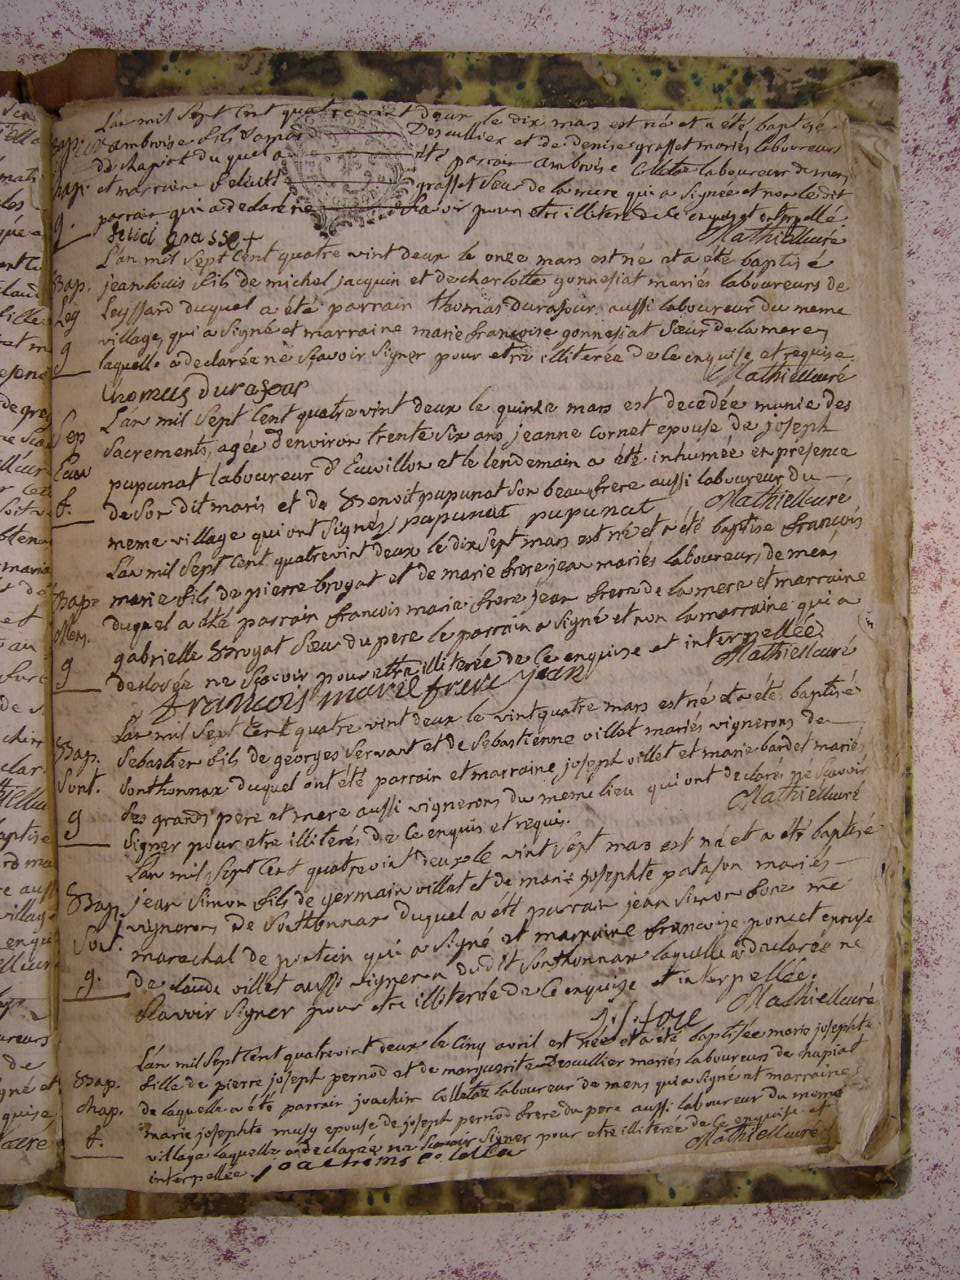 L'an mil sept cent quatrevint deux le dix mars est né et a été baptisé
Bap.
ambroise fils d'amand Decuillier et de denise grasset mariés laboureurs
de chapiat duquel a été parrain ambroise Colletaz laboureur de mens
chap.
et marraine felicité grasset Sœur de la mere qui a signée et non ledit
g.
parrain qui a declaré ne Scavoir pour etre illiteré de ce enquis et interpellé
felici grasset Mathieu curé
L'an mil Sept Cent quatre vint deux le onze mars est né et a été baptisé
Bap. jean louis fils de michel jacquin et de charlotte gonnesiat mariés laboureurs de
Ley Leyssard duquel a été parrain thomas Durafour aussi laboureur du meme
g village, qui a Signé et marraine marie françoise gonnesiat Sœur de la mere,
laquelle a declarée ne Sçavoir Signer pour etre illiterée de ce enquise et requise
Mathieu curé
thomas durafour
L'an mil Sept Cent quatre vint deux le quinze mars est decedée munie des
Sep Sacrements, agée d'environ trente Six ans, jeanne cornet epouse de joseph
pupunat laboureur d'Euvillon et le lendemain a été inhumée en présence
f. de Son dit maris et de Benoit pupunat Son beau frere aussi laboureur du
meme village qui ont Signés j papunat pupunat Mathieu curé
L'an mil Sept Cent quatrevint deux le dix Sept mars est né et a été baptisé françois
Bap. marie fils de pierre brogat et de marie frere jean mariés laboureurs de mens
Men. duquel a été parrain françois marie frere jean frere de la mere et marraine
gabrielle Brogat Sœur du pere le parrain a Signé et non la marraine qui a
g declarée ne Sçavoir pour etre illiterée de ce enquise et interpellée
Mathieu curé
francois marie frere jean
L'an mil Sept Cent quatre vint deux le vint quatre mars est né et a été baptisé
Bap. Sebastien fils de georges Servant et de Sebastienne villet mariés vignerons de
Sont. Sonthonnax duquel ont été parrain et marraine joseph villet et marie bardet mariés
g Ses grands pere et mere aussi vignerons du meme lieu qui ont declarés ne Sçavoir
Signer pour etre illiterés de ce enquis et requis. Mathieu curé
L'an mil Sept Cent quatrevint deux le vint Sept mars est né et a été baptisé
Bap. jean Simon fils de germain villet et de marie josephte patason mariés
Son. vignerons de Sonthonnax duquel a été parrain jean Simon
marechal de poncin qui a Signé et marraine françoise poncet epouse
g. de claude villet aussi vigneron dudit Sonthonnax laquelle a declarée ne
Sçavoir Signer pour etre illiterée de ce enquise et interpellée. Mathieu curé
L'an mil Sept Cent quatrevint deux le Cinq avril est née et a été baptisée marie josephte
Bap. fille de pierre joseph pernod et de marguerite Decuillier mariés laboureurs de chapiat
chap. de laquelle a été parrain joachim Colletaz laboureur de mens qui a Signé et marraine
marie josephte musy epouse de joseph pernod frere du pere aussi laboureur du meme
f. village laquelle a declarée ne Scavoir Signer pour etre illiterée de ce enquise et
interpellée. joachims coletta Mathieu curé